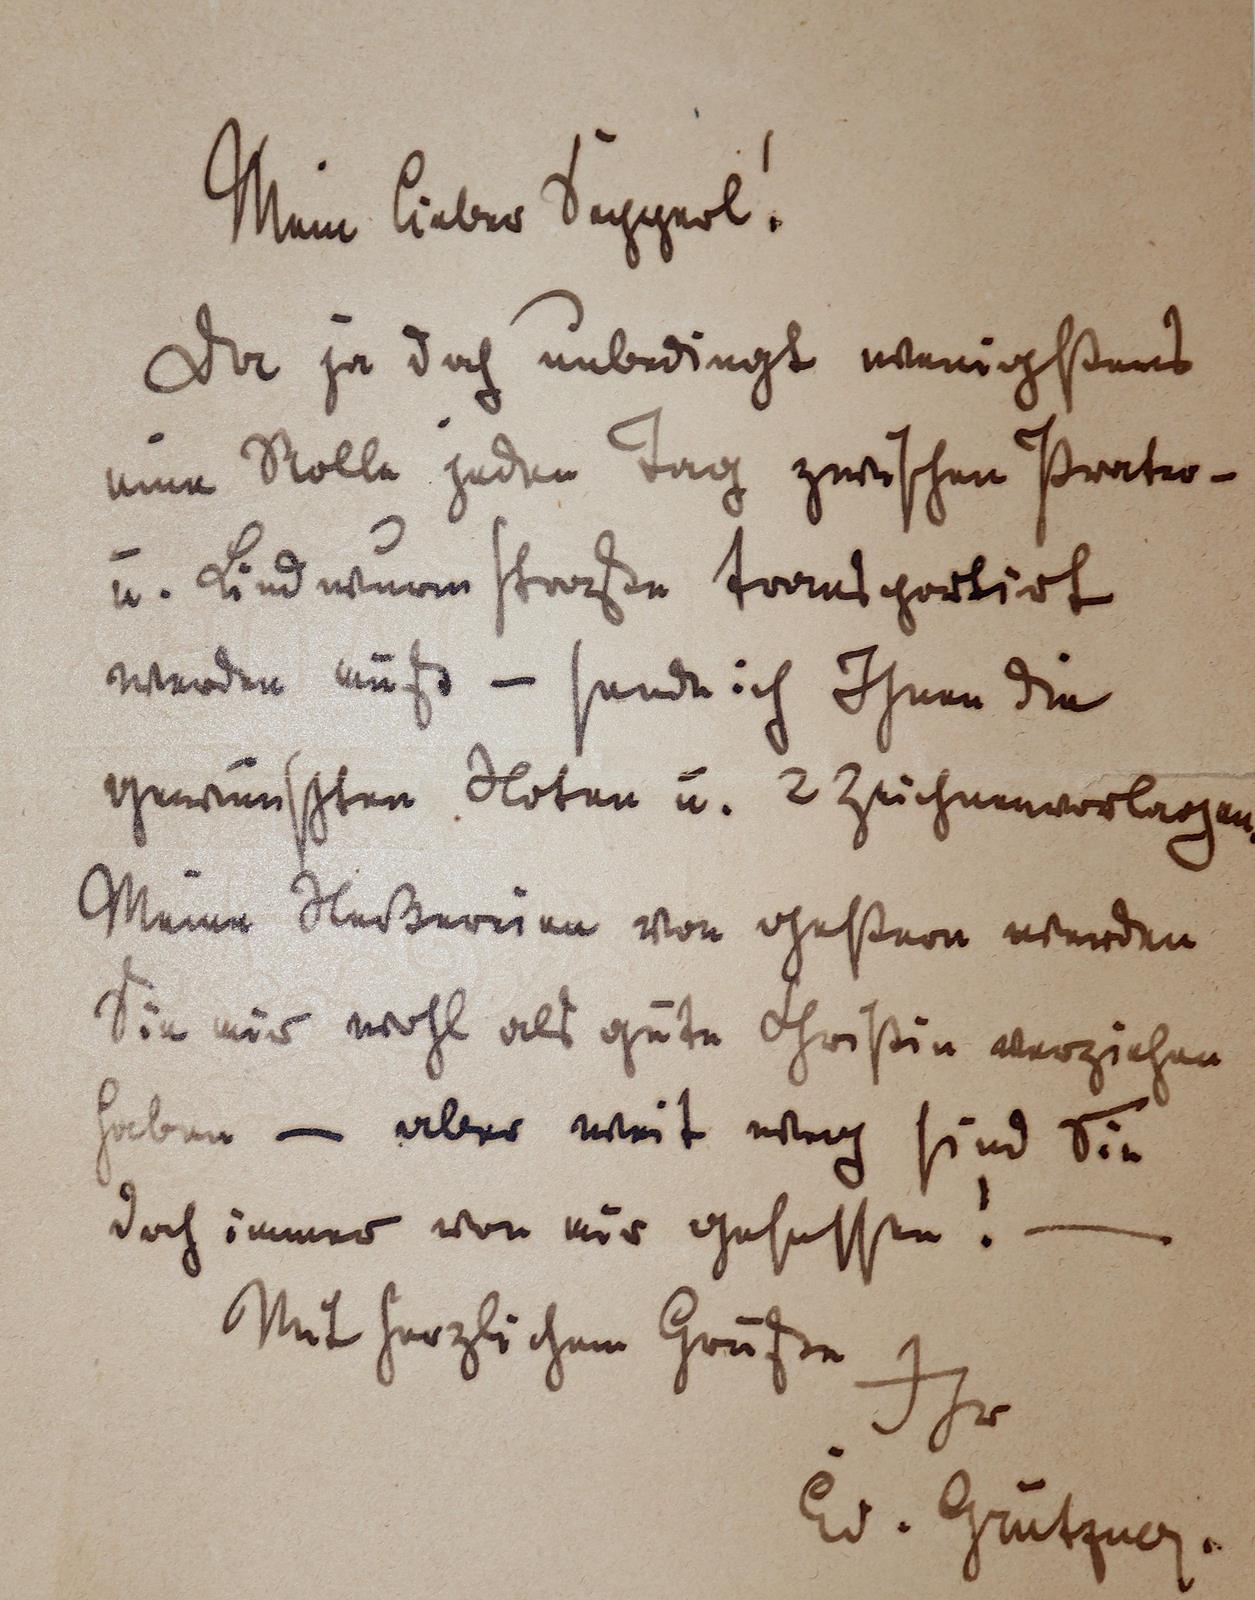 Mein lieber Sepperl!
Da ja doch unbedingt wenigstens
eine Rolle jeden Tag zwischen Prater-
u. Lindwurmstraße transportirt
werden muß – sende ich Ihnen die
gewünschten Noten u. 2 Zeichnenvorlagen.
Meine Neckereien von gestern werden
Sie mir wohl als gute Christin verziehen
haben — aber weit weg sind Sie
doch immer von mir gesessen! —
Mit herzlichem Gruße
Ihr
Ed. Grützner.